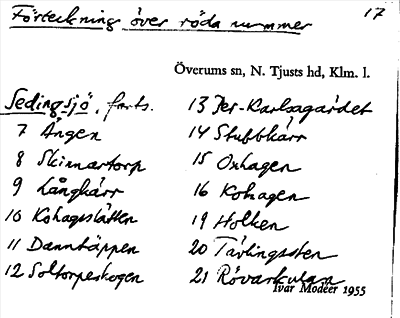 Förteckning över röda nummer
17
Överums sn, N. Tjusts hd, Klm. l.
Sedingsjö, forts.
7 Ängen
8 Skinnartorp
9 Långkärr
10 Kohagsslätten
11 Dammtäppen
12 Soltorpsskogen
13 Per-Karlsagärdet
14 Stubbkärr
15 Oxhagen
16 Kohagen
19 Holken
20 Tävlingssten
21 Rövarkulan
Ivar Modéer 1955